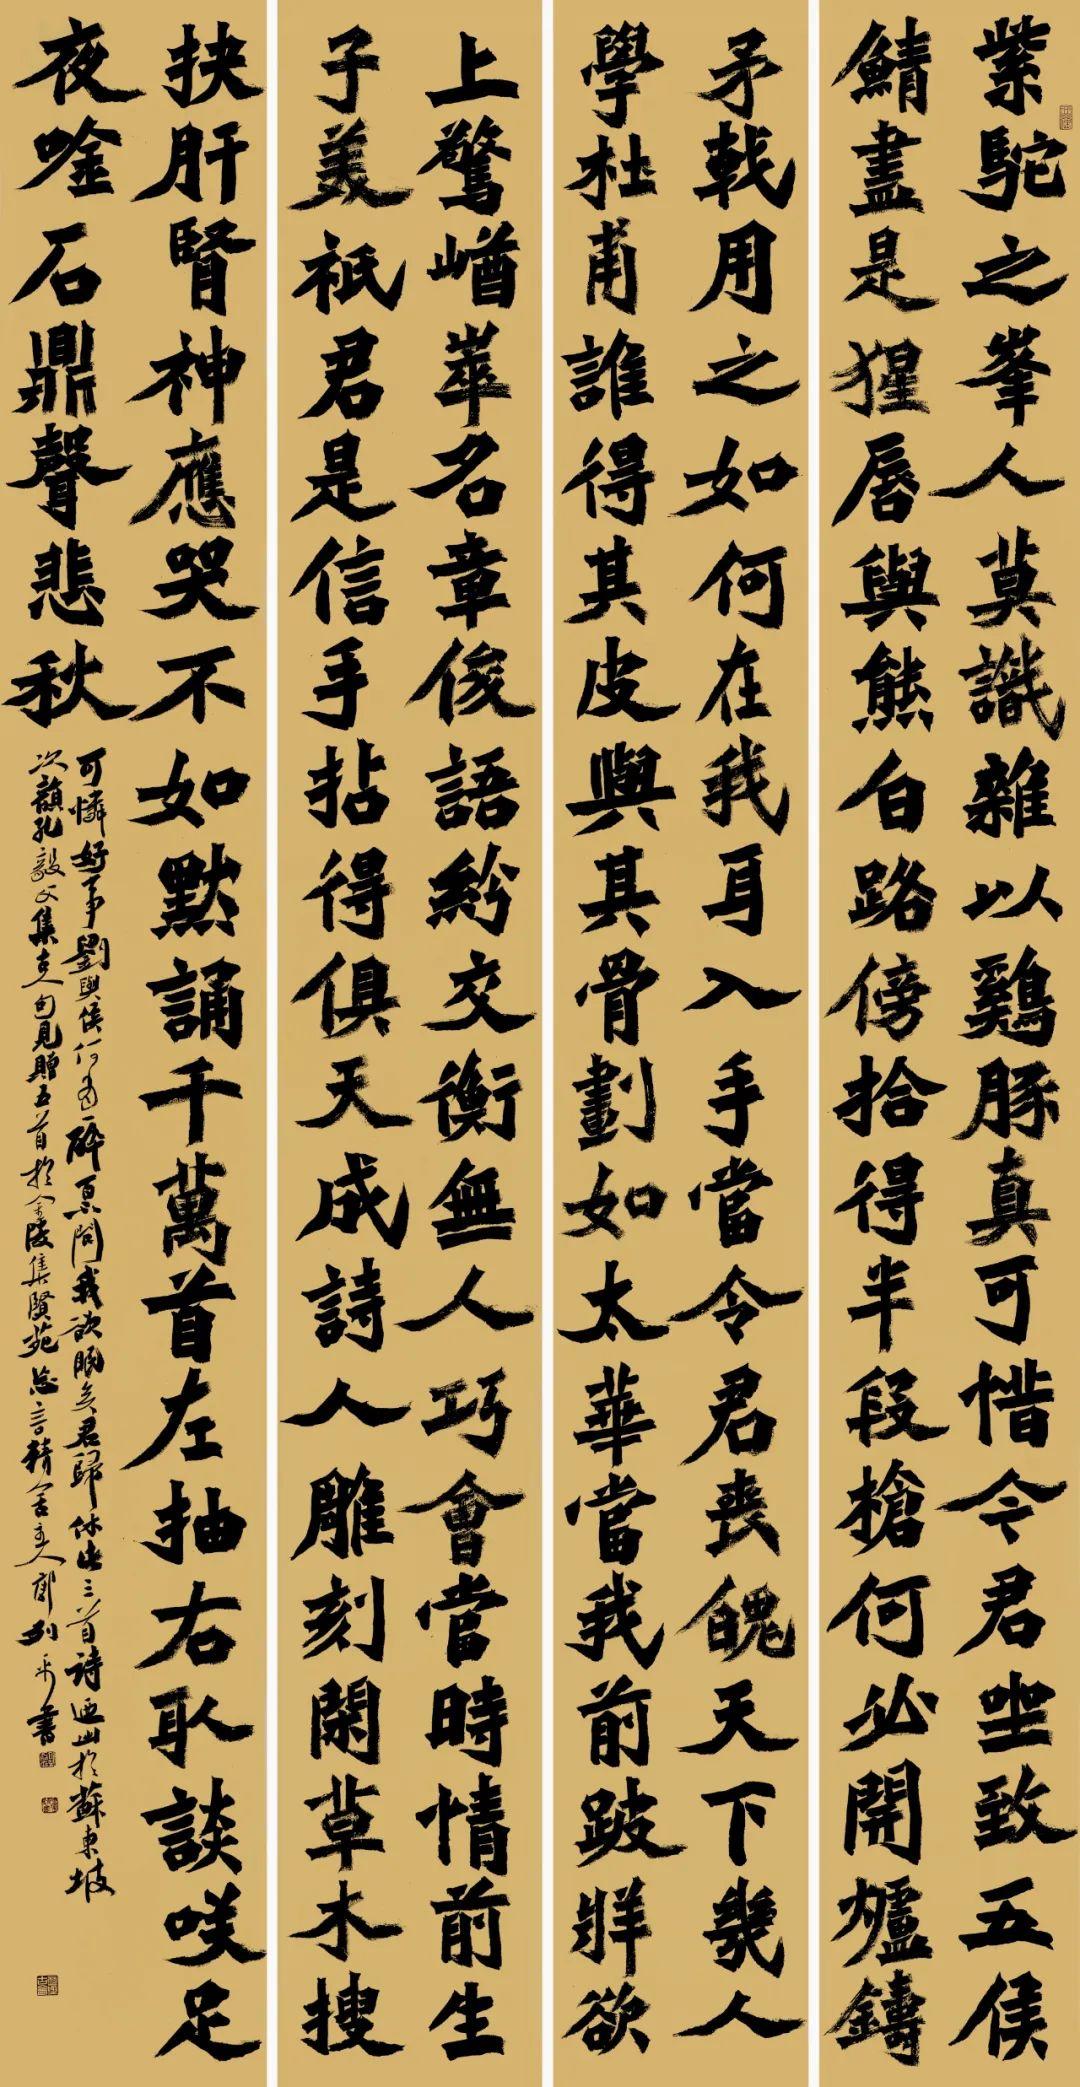 紫駝之峯人莫識雜以鷄豚真可惜今君坐致五侯
鯖盡是猩脣與熊白路傍拾得半段槍何必開爐鑄
矛戟用之如何在我耳入手當令君喪魄天下幾人
學杜甫誰得其皮與其骨劃如太華當我前跛牂欲
上驚崷崒名章俊語紛交衡無人巧會當時情前生
子美祇君是信手拈得俱天成詩人雕刻閑草木搜
抉肝腎神應哭不如默誦千萬首左抽右取談咲足
夜唫石鼎聲悲秋
可憐好事劉與侯何當一醉百不問我欲眠矣君歸休此三首詩迺出於蘇東坡
次韻孔毅父集古人句見贈五首於金陵集賢苑忘言精舍主人郭列平書